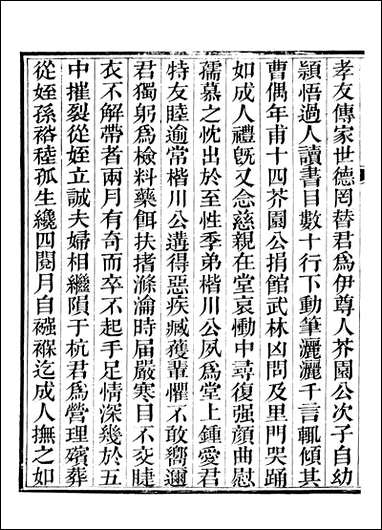 孝友傳家世德罔替君爲伊尊人芥園公次子自幼
頴悟過人讀書目數十行下動筆灑灑千言輒傾其
曹偶年甫十四芥園公捐館武林凶問及里門哭踊
如成人禮旣又念慈親在堂哀慟中尋復强顏曲慰
孺慕之忱出於至性季弟楷川公夙爲堂上鍾愛君
特友睦逾常楷川公遘得惡疾臧獲輩懼不敢嚮邇
君獨躬爲檢料藥餌扶搘滌瀹時届嚴寒目不交睫
衣不解帶者兩月有奇而卒不起手足情深幾於五
中摧裂從姪立誠夫婦相繼隕于杭君爲營理殯葬
從姪孫裕稑孤生纔四閱月自襁褓迄成人撫之如